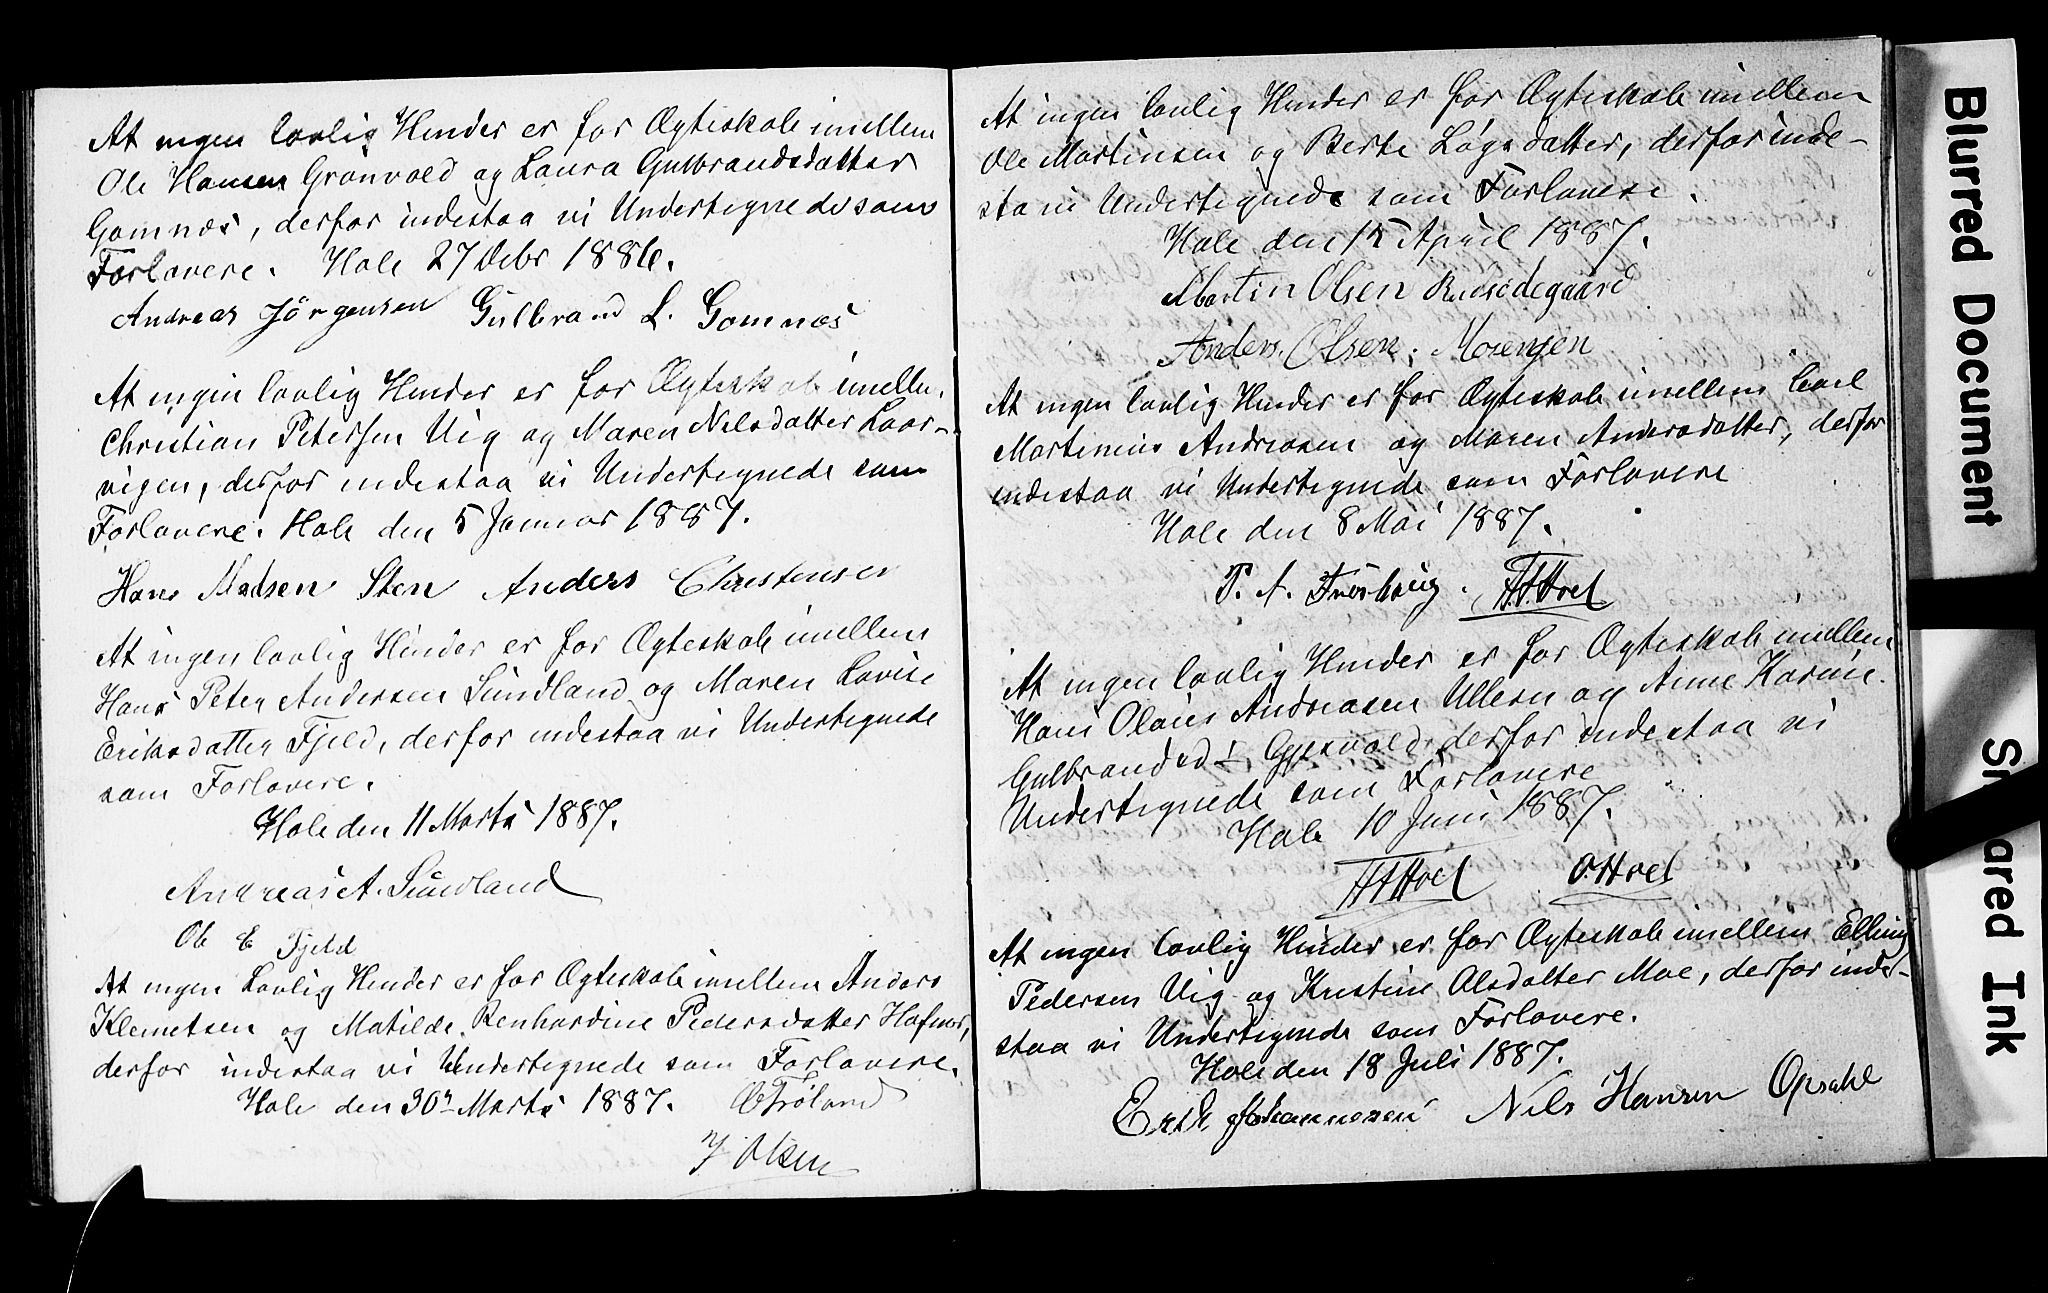 At ingen lovlig Hinder er for Ægteskab imellem
Ole Hansen Grønvold og Laura Gulbrandsdatter
Gomnæs, derfor indestaa vi Undertegnede som
Forlovere. Hole 27 Debr 1886.
Andreas Jörgensen Gulbrand L. Gomnæs
At ingen lovlig Hinder er for Ægteskab imellem
Christian Petersen Vig og Maren Nilsdatter Laar-
vigen, derfor indestaa vi Undertegnede som
Forlovere. Hole den 5 Januar 1887.
Hans Madsen Sten Anders Christensen
At ingen lovlig Hinder er for Ægteskab imellem
Hans Peter Andersen Sundland og Maren Lovise
Eriksdatter Fjeld, derfor indestaa vi Undertegnede
som Forlovere.
Hole den 11 Marts 1887.
Andreas A. Sundland
Ole E Fjeld
At ingen Lovlig Hinder er for Ægteskab imellem Anders
Klemetsen og Matilde Renhardine Pedersdatter Hafnor,
derfor indestaa vi Undertegnede som Forlovere.
Hole den 30te Marts 1887. O Frøland
J Olsen
At ingen lovlig Hinder er for Ægteskab imellem
Ole Martinsen og Berte Løgsdatter, derfor inde-
sta vi Undertegnede som Forlovere.
Hole den 12 April 1887.
Martin Olsen Rudsødegaard
Anders. Olsen. Morengen
At ingen lovlig Hinder er for Ægteskab imellem Carl
Martinius Andreasen og Maren Andersdatter, derfor
indestaa vi Undertegnede som Forlovere
Hole den 8 Mai 1887.
P. A. Frøshaug. H.H. Hoel
At ingen lovlig Hinder er for Ægteskab imellem
Hans Olaus Andreasen Ullern og Anne Karine
Gulbrandsd: Gjesvold, derfor indestaa vi
Undertegnede som Forlovere
Hole 10 Juni 1887.
HH Hoel O. Hoel
At ingen lovlig Hinder er for Ægteskab imellem Elling
Pedersen Vig og Kristine Olsdatter Moe, derfor inde-
staa vi Undertegnede som Forlovere.
Hole den 18 Juli 1887.
Erik Johannesen Nils Hansen Opsahl
Blurred Document
Smeared Ink